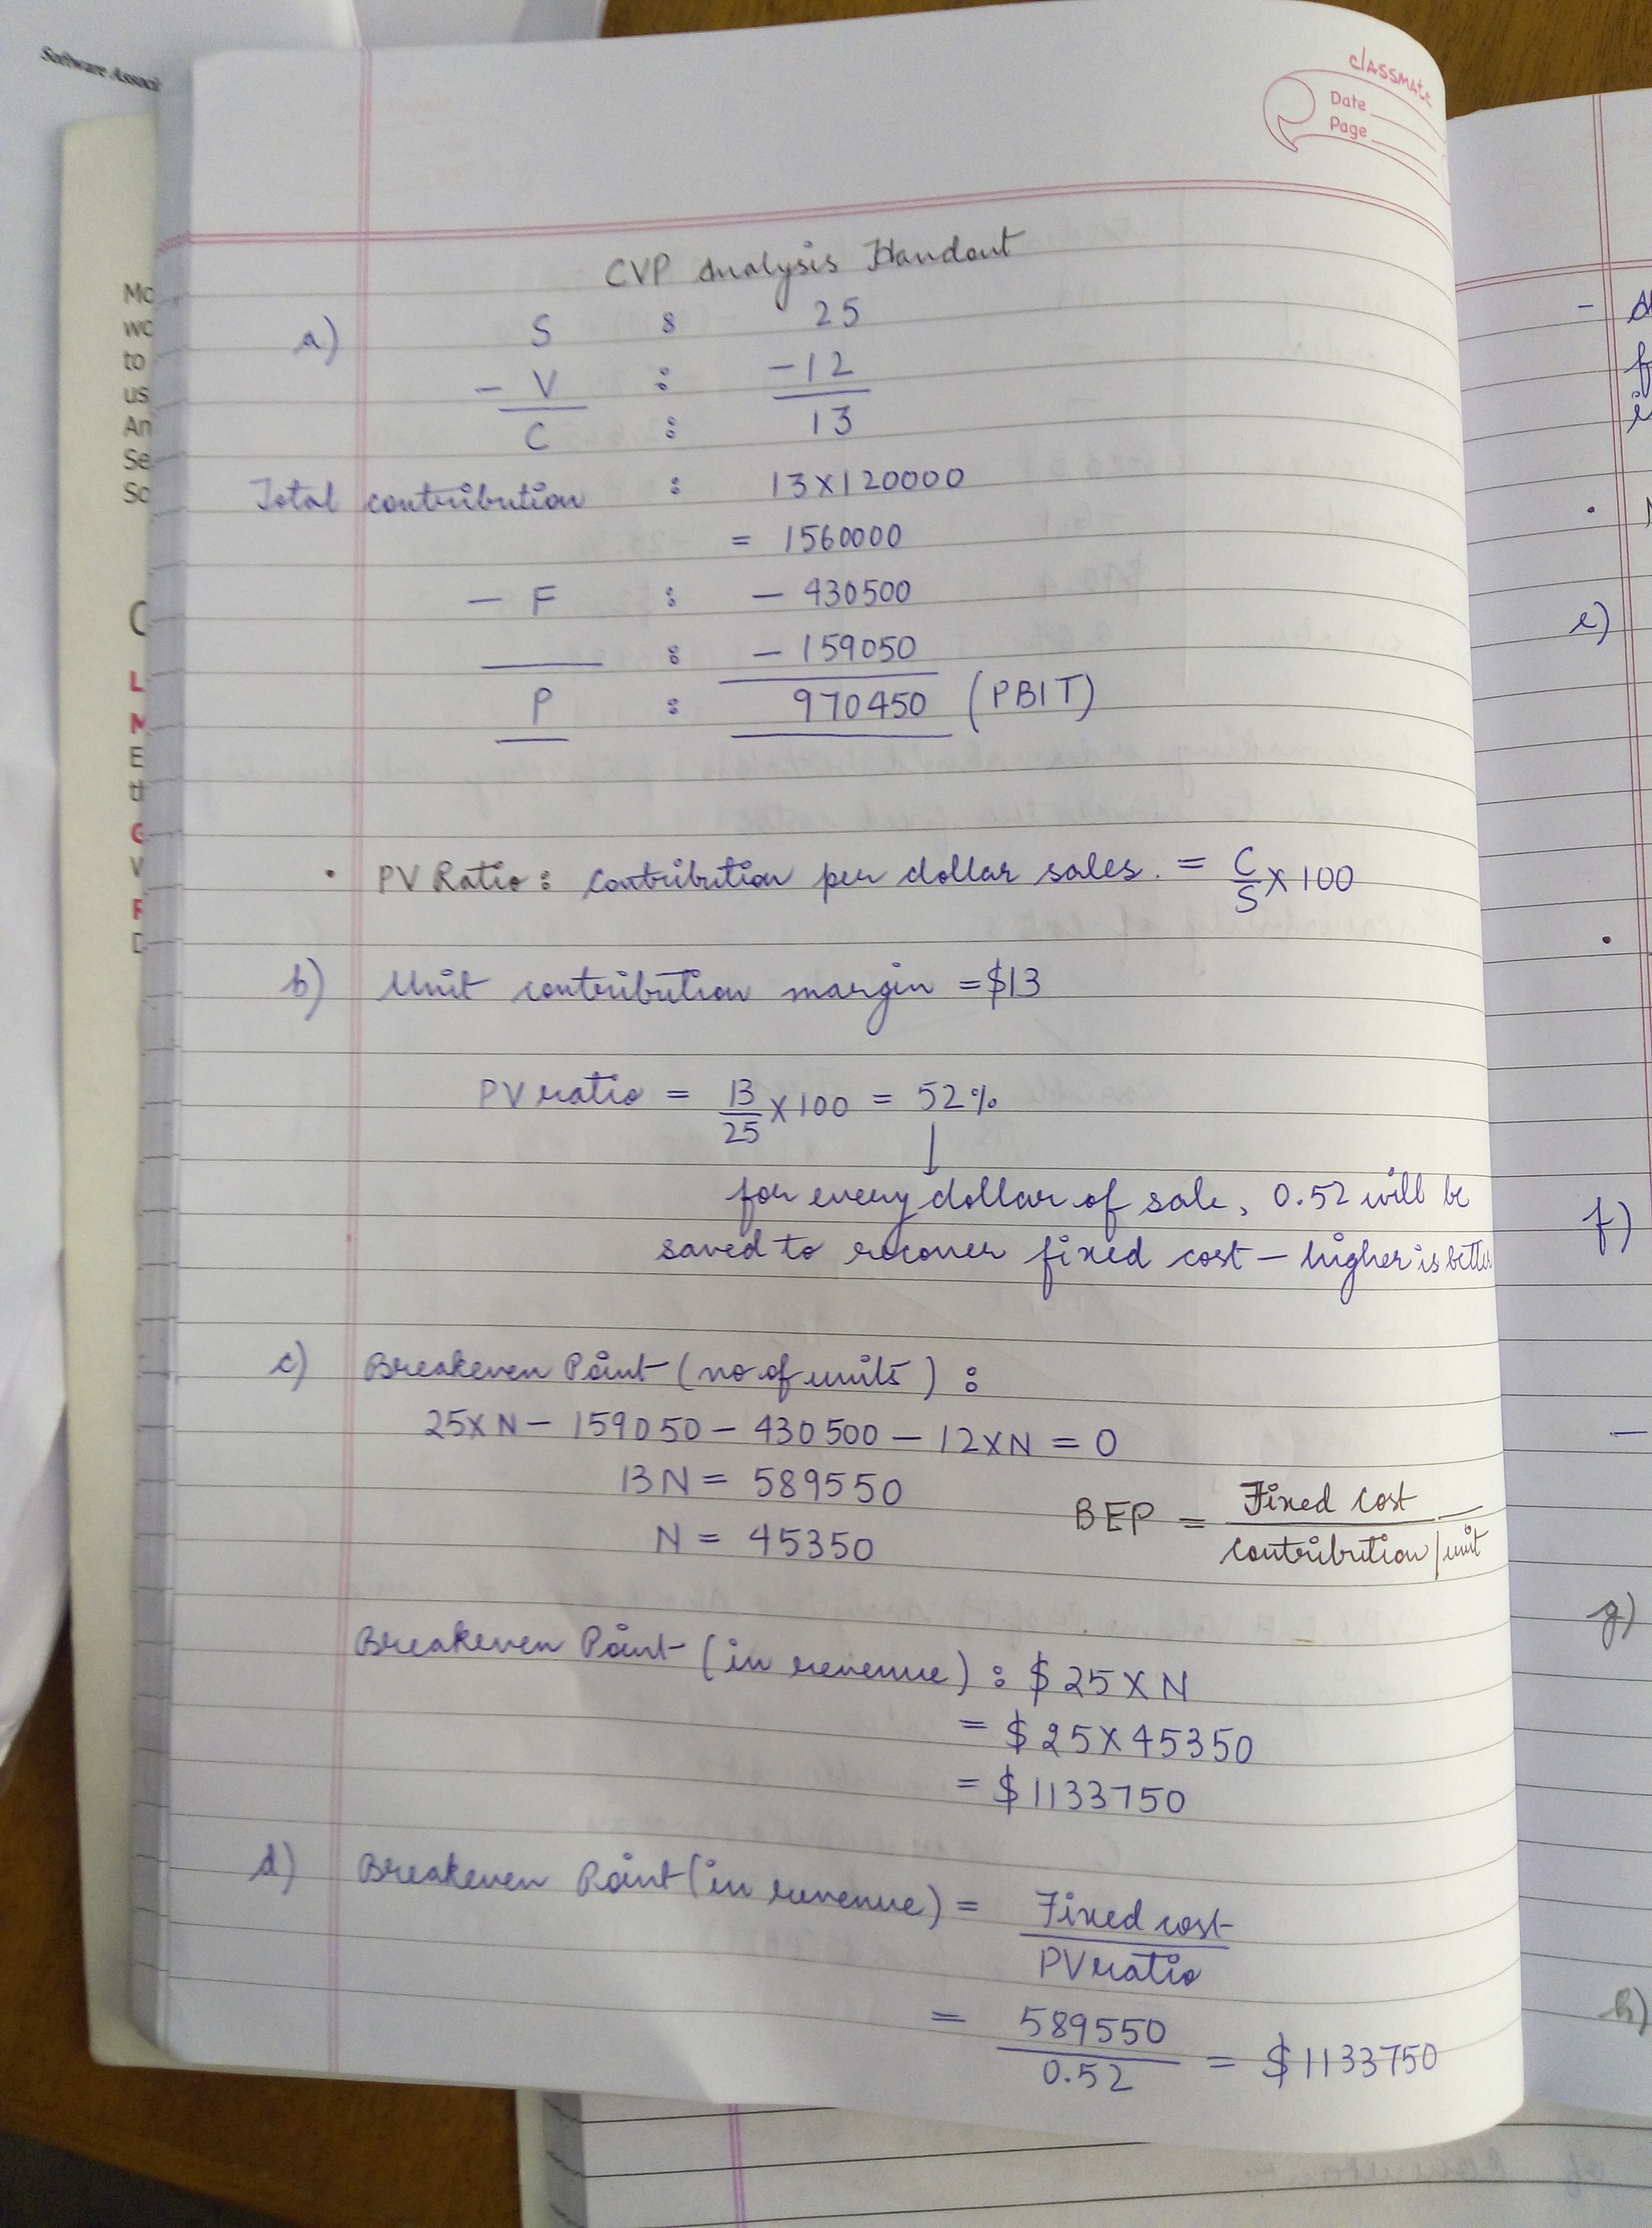 Software Associ
classmate
Date
Page
CVP Analysis Handout
a) S : 25
- V : -12
C : 13
Total contribution : 13X120000
= 1560000
- F : - 430500
: - 159050
P : 970450 (PBIT)
• PV Ratio: contribution per dollar sales. = C/S X 100
b) Unit contribution margin = $13
PV ratio = 13/25 X 100 = 52%
for every dollar of sale, 0.52 will be
saved to recover fixed cost - higher is better
c) Breakeven Point (no of units) :
25XN - 159050 - 430500 - 12XN = 0
13N = 589550
N = 45350
BEP = Fixed cost / contribution/unit
Breakeven Point (in revenue) : $25XN
= $25X45350
= $1133750
d) Breakeven Point (in revenue) = Fixed cost / PV ratio
= 589550 / 0.52 = $1133750
Mo
wo
to
us
An
Se
So
L
M
E
th
G
W
F
D
e)
f)
g)
h)